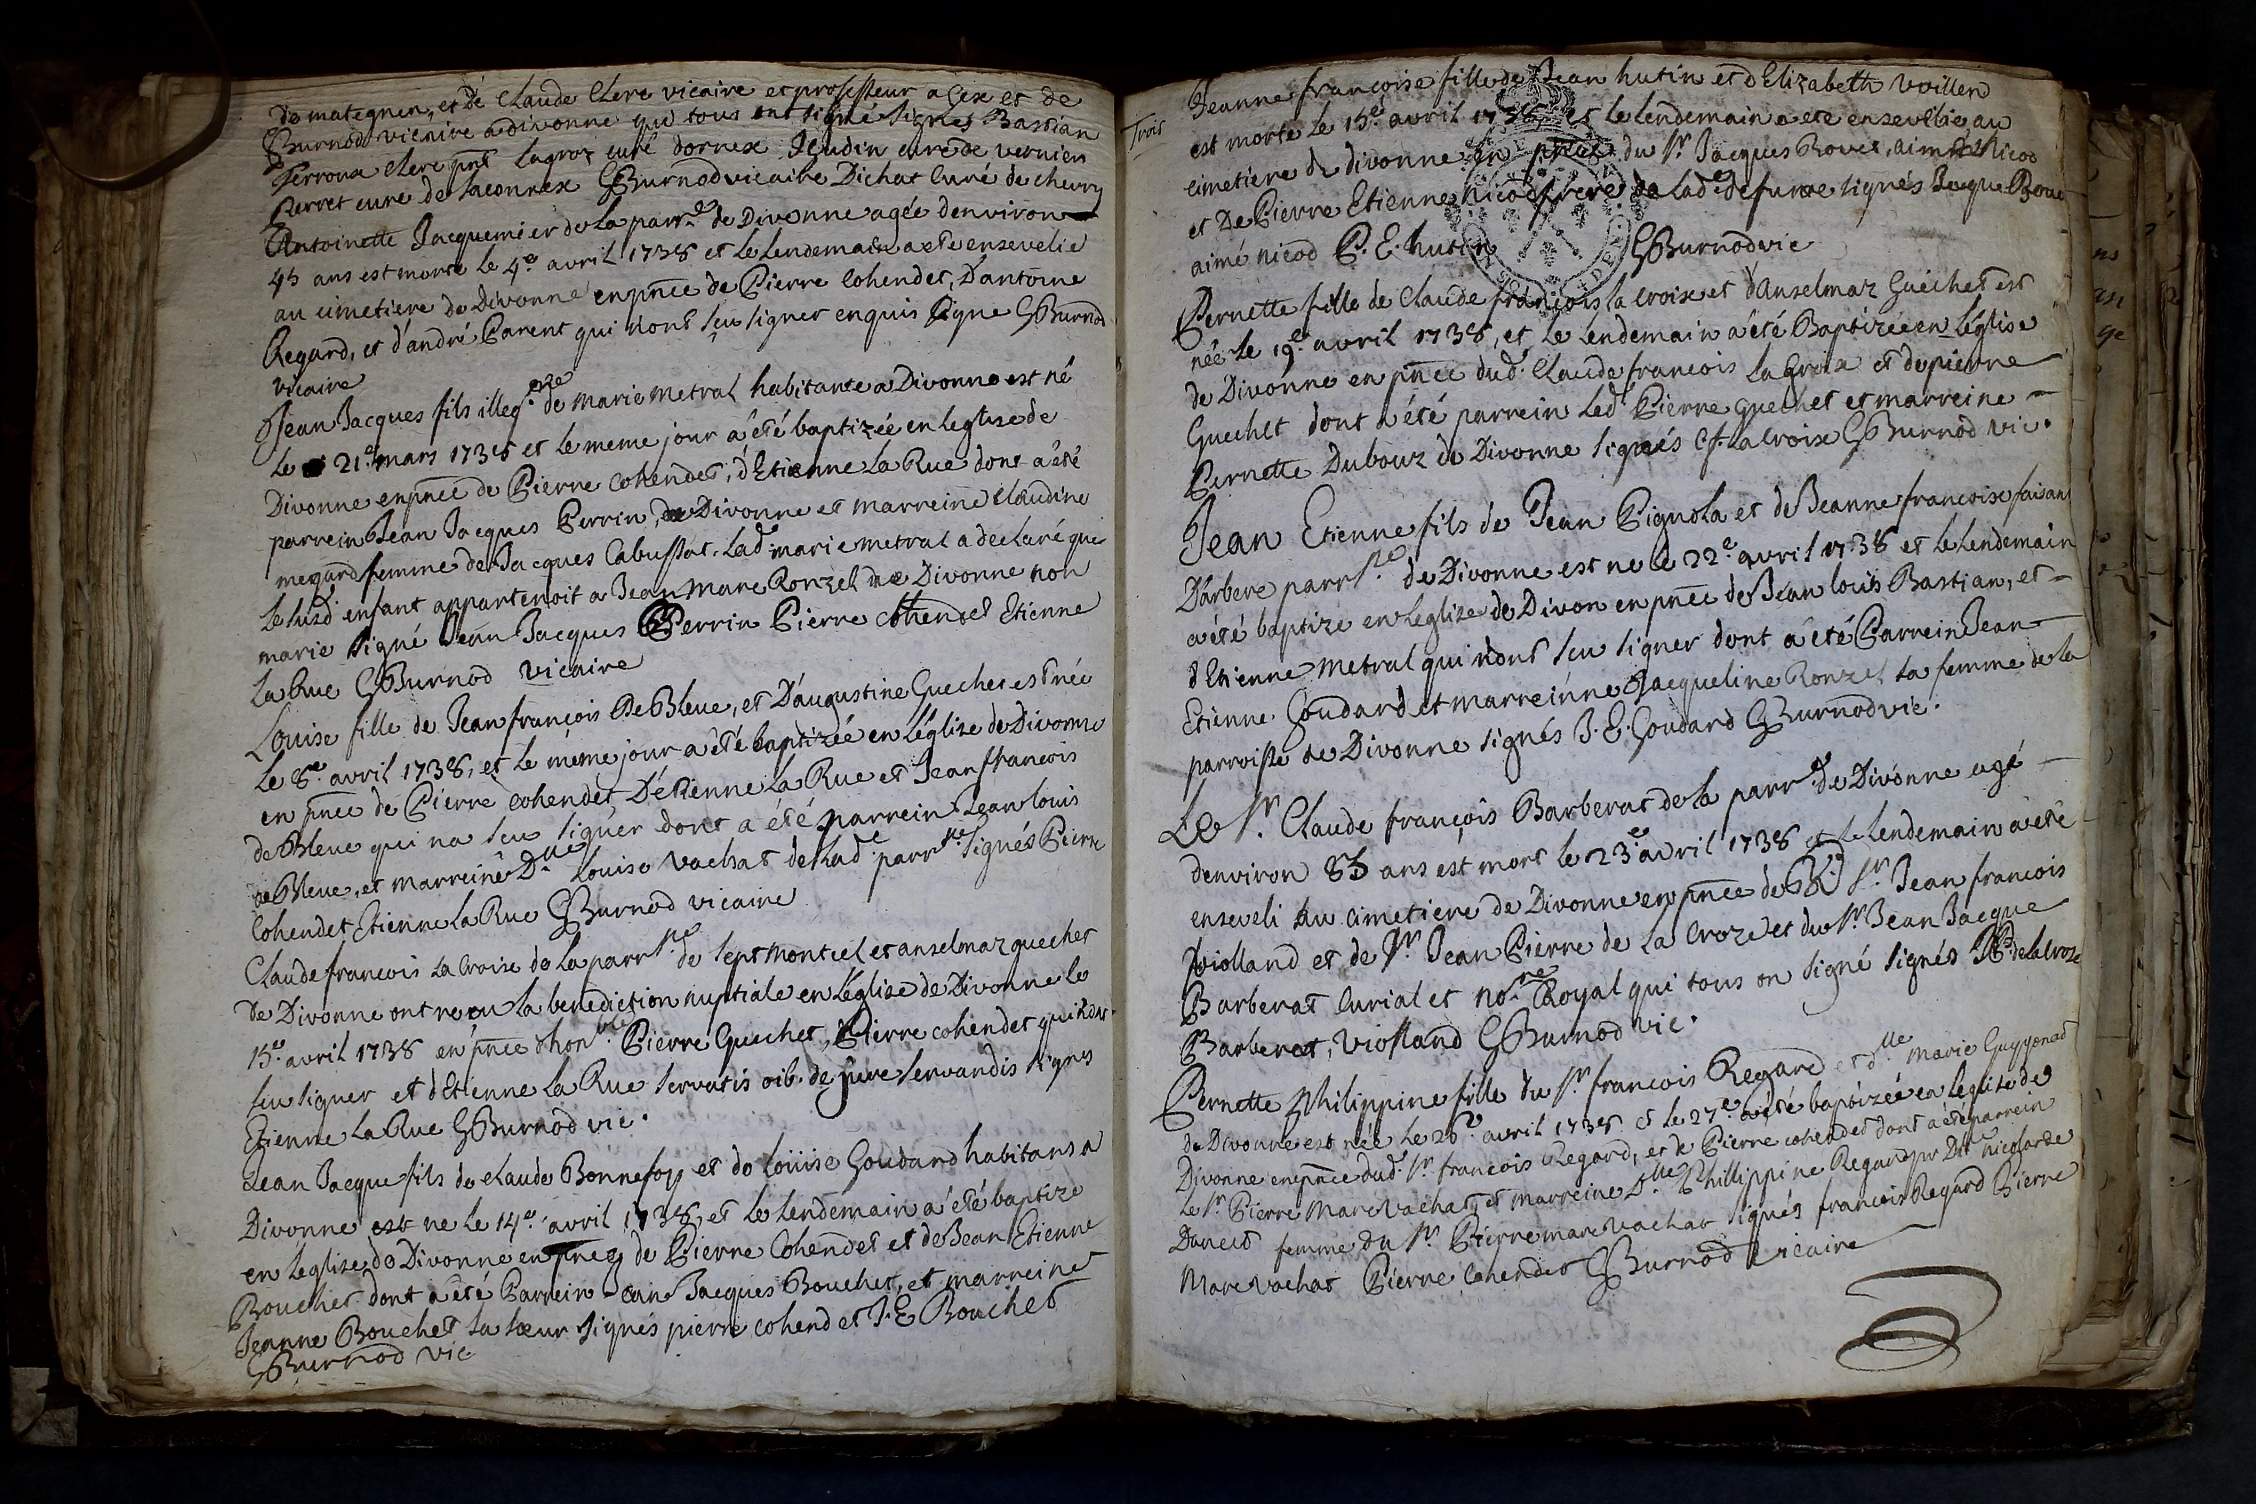 de mategnen, et de Claude Clerc vicaire et professeur a Gex et de
Burnod vicaire a divonne qui tous ont signé signes Bastian
Perroux Clerc pnt Lagroz curé dornex Jeudin curé de vernien
Perret curé de Saconnex GBurnod vicaire Dichat Curé de chevry
Antoinette Jacquemier de la parr.e de Divonne agée denviron
45 ans est morte le 4.e avril 1738 et le Lendemain a ete ensevelie
au cimetiere de Divonne en pnce de Pierre Cohendet, D'antoine
Regard, et d'andré Parent qui nont sçu signer enquis signe GBurnod
vicaire
Jean Jacques fils illeg.me de marie metral habitante a Divonne est né
Le 21.e mars 1738 et le meme jour a été baptizée en leglise de
Divonne en pnce de Pierre Cohendet, d'Etienne La Rue dont a été
parrein Jean Jacques Perrin, de Divonne et marreine Claudine
megard femme de Jacques Cabussat. Lad. marie metral a declaré que
Le susd. enfant appartenoit a Jean Marc Ronzel de Divonne non
marié signé Jean Jacques Perrin Pierre Cohendet Etienne
La Rue GBurnod vicaire
Louise fille de Jean françois DeBleue, et D'augustine Guechet est née
Le 8.e avril 1738, et Le même jour a été baptizée en L'église de Divonne
en pnce de Pierre Cohendet D'étienne La Rue et Jean francois
deBleue qui na sçu signer dont a été parrein Jean louis
deBleue, et marreine D.lle Louise Vachat de Lad.e parr.sse signés Pierre
Cohendet Etienne la Rue GBurnod vicaire
Claude francois La Croix de La parr.sse de Sept Montcel et anselmaz quechet
de Divonne ont recu La benediction nuptiale en L'église de Divonne Le
15.e avril 1738 en pnce d'hon.ble Pierre Guechet, Pierre cohendet qui nont
seu signer et d'Etienne La Rue servatis oib. de jure servandis signes
Etienne La Rue GBurnod vic.
Jean Jacque fils de Claude Bonnefoy et de Loüise Goudard habitans a
Divonne est ne le 14.e avril 1738, et Le Lendemain a été baptize
en L'église de Divonne en pnce de Pierre Cohendet et de Jean Etienne
Bouchet dont a été Parrein Jean Jacques Bouchet, et marreine
Jeanne Bouchet sa sœur signés pierre cohendet J. E Bouchet
GBurnod vic
Trois
Jeanne francoise fille de Jean hutin et d'Elizabeth Vuillen
est morte le 15.e avril 1738, et le lendemain a ete ensevelie au
cimetiere de divonne en pnce du Sr. Jacques Rouet, aimé Nicod
et De Pierre Etienne frere de Lad.e defunte signés Jacque Rouet
aimé nicod P. E. hutin GBurnod vic
Pernette fille de Claude françois la Croix et d'anselmaz Guechet est
née Le 19.e avril 1738, et le Lendemain a été Baptizée en L'église
de Divonne en pnce dud. Claude francois La Croix et de pierre
Guechet dont a été parrein Led. Pierre guechet et marreine
Pernette Dubouz de Divonne signés Cf. La Croix GBurnod vic.
Jean Etienne fils de Jean Pignola et de Jeanne francoise faisan
D'arbere parr.sse de Divonne est ne le 22.e avril 1738 et le Lendemain
a été baptize en l'eglise de Divon en pnce de Jean Louis Bastian, et
d'Etienne metral qui nont seu signer dont a été Parrein Jean
Etienne Goudard et marreinne Jacqueline Ronzel sa femme de la
parroisse de Divonne signés J. E. Goudard GBurnod vic.
Le Sr. Claude françois Barberat de la parr.e de Divonne agé
denviron 85 ans est mort le 23.e avril 1738 et Le Lendemain a été
enseveli au cimetiere de Divonne en pnce de Sr. Jean francois
Violland et de Sr. Jean Pierre de La Croze et du Sr. Jean Jacque
Barberat Curial et no.re Royal qui tous on signé signés de la Croze
Barberat, Violland GBurnod vic.
Pernette Philippine fille du Sr francois Regard et d.lle marie Guygonad
de Divonne est née Le 26.e avril 1738 et Le 27.e a été baptizée en L'eglise de
Divonne en pnce dud. Sr. francois Regard, et de Pierre cohendet dont a été parrein
Le Sr. Pierre Marc Vachat et marreine D.lle Phillippine Regard pr D.lle nicolarde
Danets femme du Sr. Pierre marc vachat signés francois Regard Pierre
Marc Vachat Pierre Cohendet GBurnod vicaire